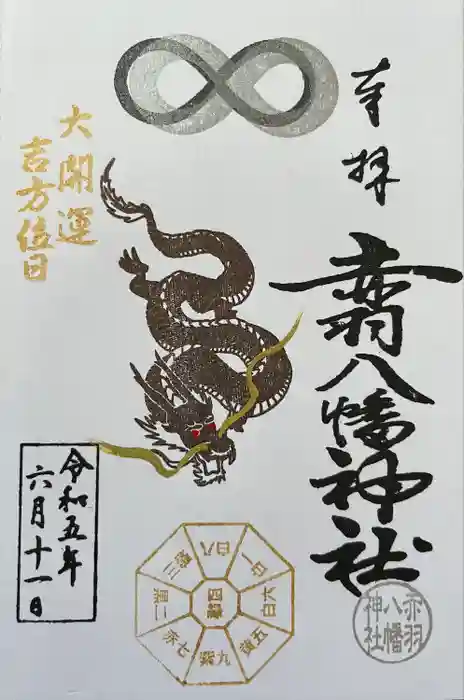 奉拝
赤羽八幡神社
赤羽
八幡
神社
大開運
吉方位日
八白
一白
六白
五黄
九紫
七赤
二黒
三碧
四緑
令和五年
六月十一日